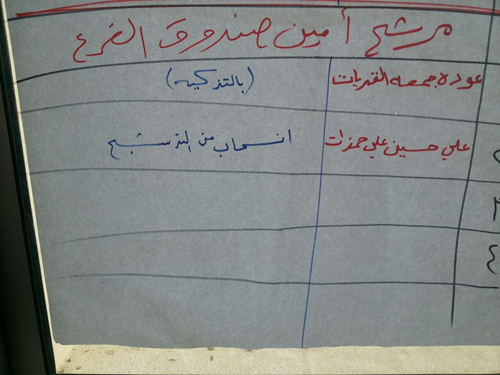 مرشح أمين صندوق الفرع
عوده جمعه القديات (بالتزكيه)
علي حسين علي حمزات انسحاب من الترشيح
٣
٤